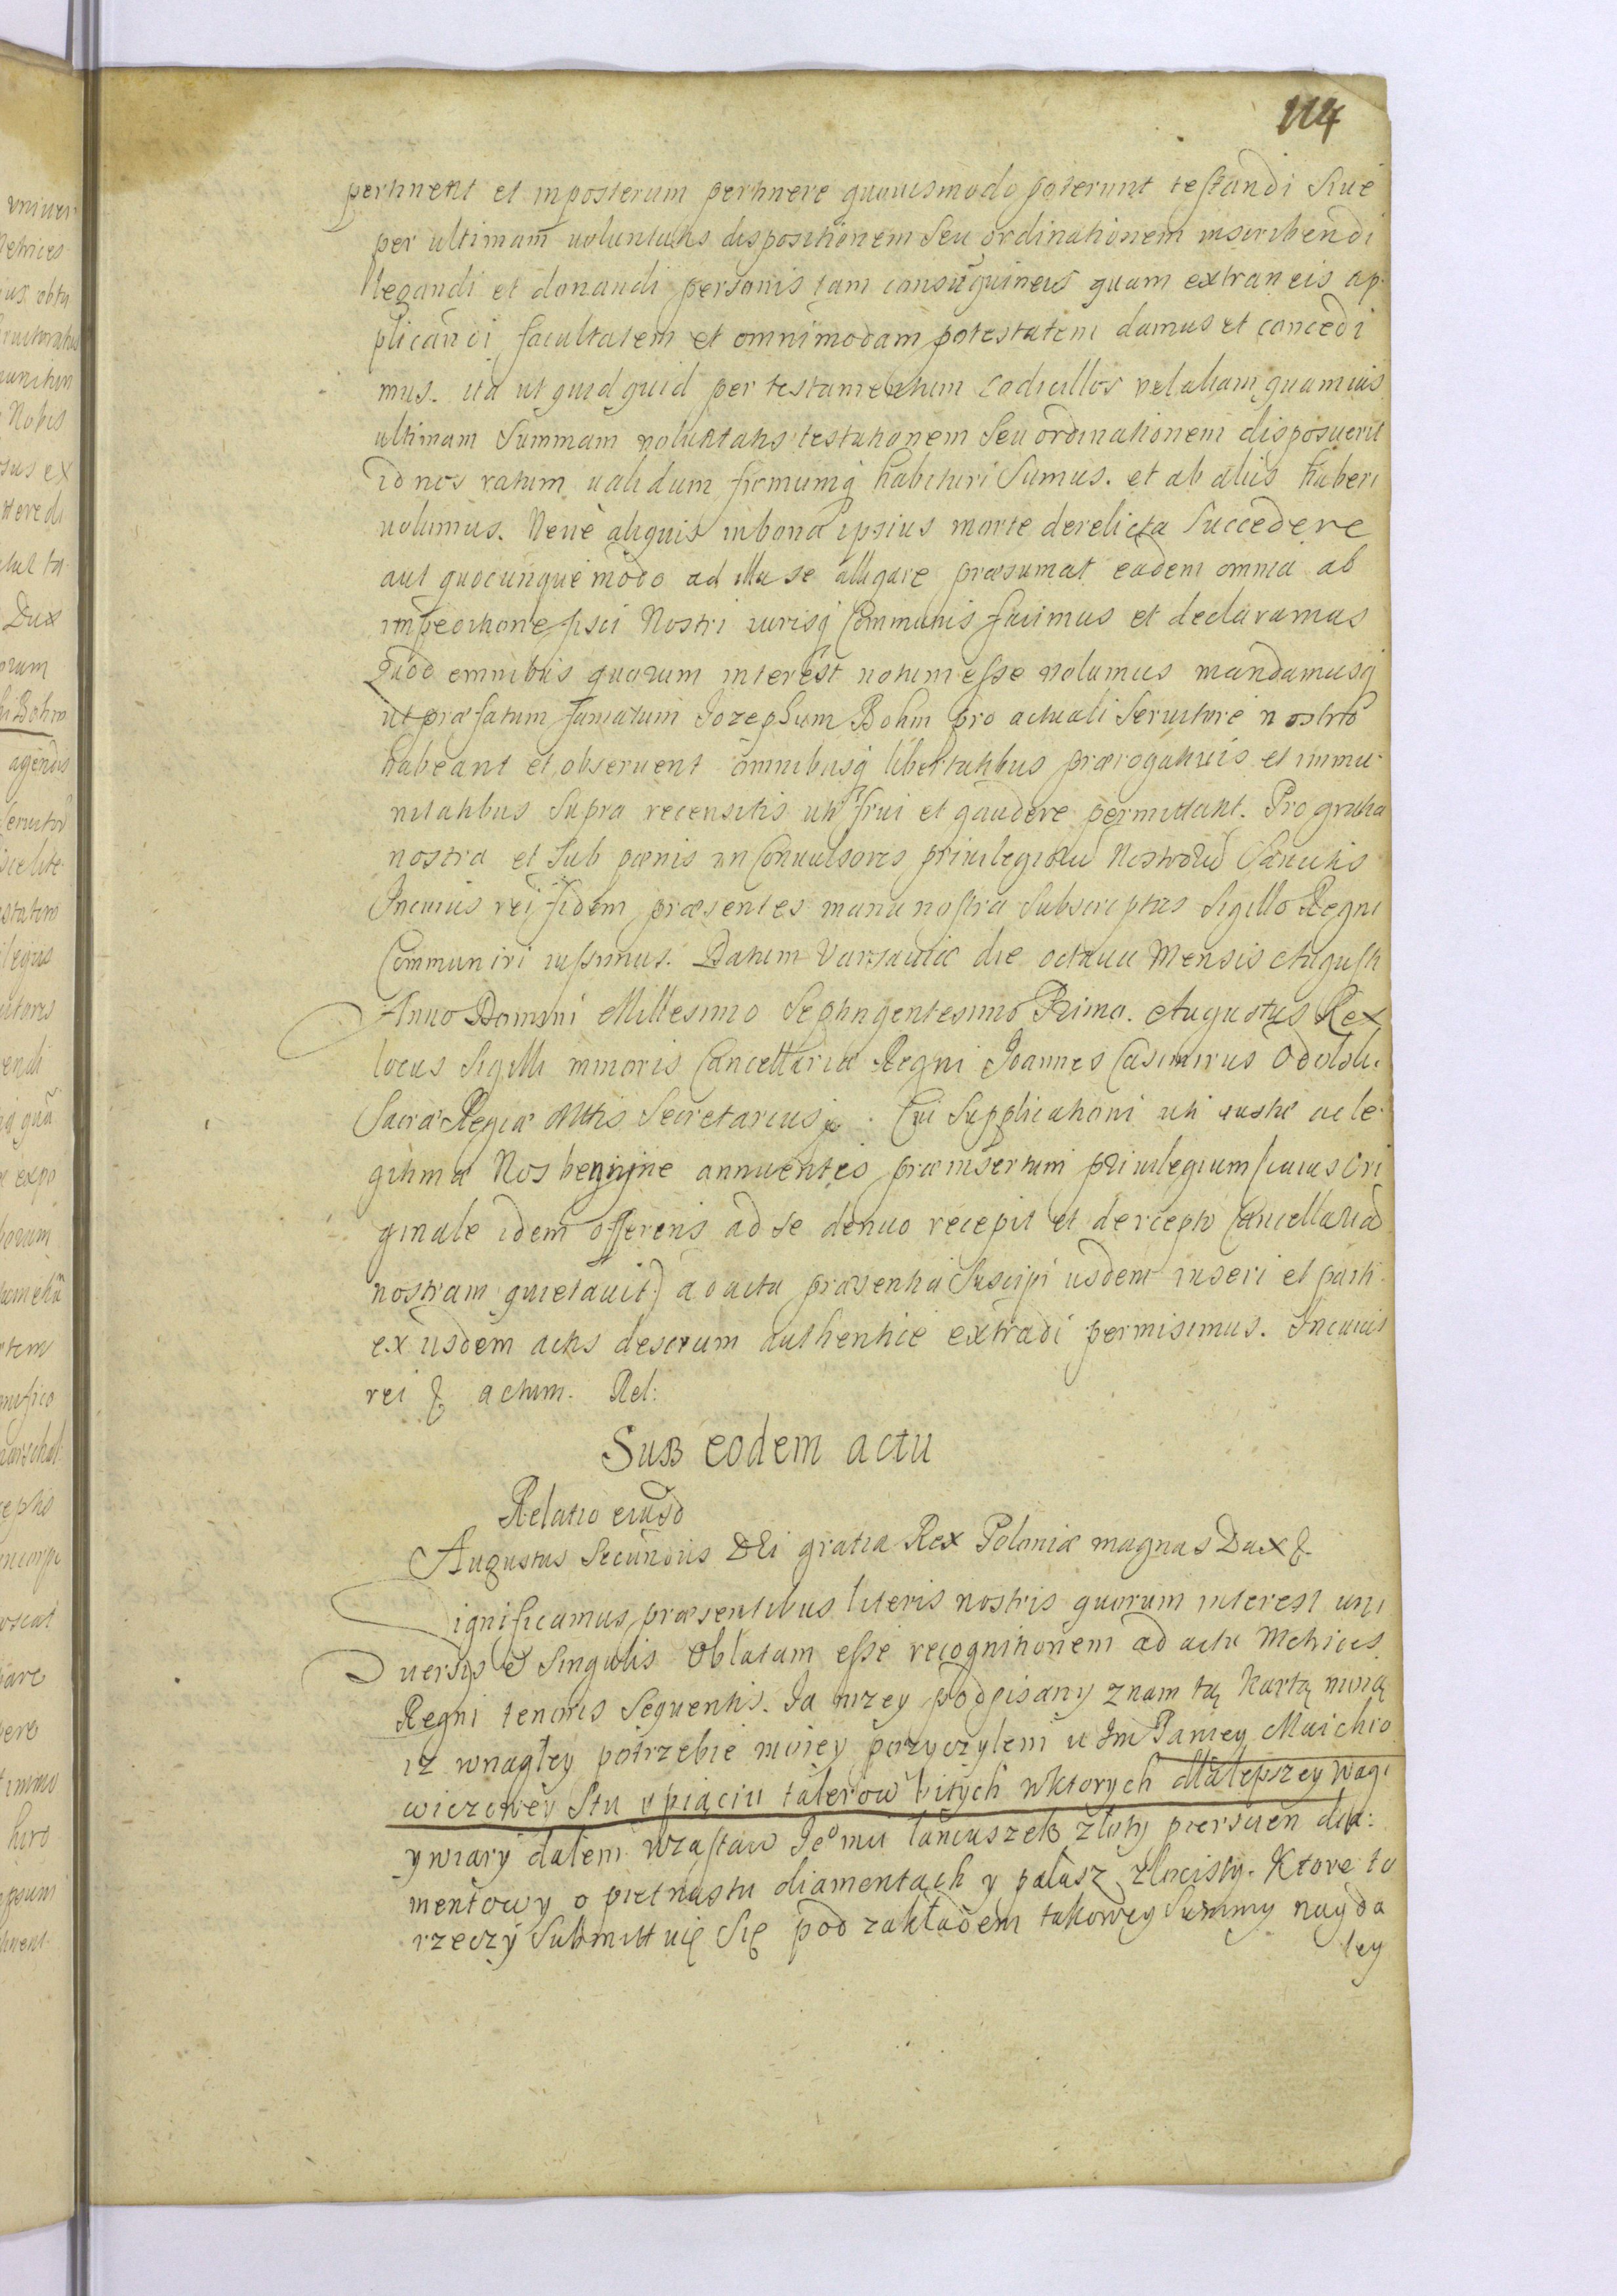 114
pertinent et inposterum pertinere quouismodo poterunt testandi Siue
per ultimam uoluntatis dispositionem Seu ordinationem inscribendi
legandi et donandi personis tam consanguineis quam extraneis ap
plicandi facultatem et omnimodam potestatem damus et concedi
mus. ita ut quidquid per testamentum Codicillos vel aliam quamuis
ultimam Summam voluntatis testationem Seu ordinationem disposuerit
id nos ratum ualidum firmumq habituri Sumus. et ab aliis haberi
uolumus. Neue aliquis in bona ipsius morte derelicta Succedere
aut quocunque modo ad illa se alligare præsumat eadem omnia ab
impeditione fisci Nostri iurisq Communis facimus et declaramus
Quod omnibus quorum interest notum esse volumus mandamusq
ut præfatum famatum Jozephum Bohm pro actuali Seruitore nostro
habeant et obseruent omnibusq libertatibus prærogatiuis et immu
nitatibus Supra recensitis uti frui et gaudere permittant. Pro gratia
nostra et Sub pœnis in Conuulsores priuilegioru Nostroru Sancitis
In cuius rei fidem præsentes manu nostra Subscriptas Sigillo Regni
Communiri iussimus. Datum Varsauiæ die octaua Mensis Augusti
Anno Domini Millesimo Septingentesimo Primo. Augustus Rex
locus Sigilli minoris Cancellariæ Regni Joannes Casimirus
Sacræ Regiæ Mttis Secretarius. Cui Supplicationi uti iustæ ac le
gitimæ Nos benigne annuentes præinsertum priuilegium (cuius Ori
ginale idem offerens ad se denuo recepit et de recepto Cancellariā
nostram quietauit) ad acta præsentia Suscipi iisdem inseri et parti
ex iisdem actis descrum authentice extradi permisimus. In cuius
rei & actum. Rel:
Sub eodem actu
Relatio eiusd
Augustus Secundus Dei gratia Rex Poloniæ magnus Dux &
Significamus præsentibus literis nostris quorum interest uni
uersis & Singulis Oblatam esse recognitionem ad acta Metrices
Regni tenoris Sequentis. Ja nizey podpisany znam tą kartą moią
iz wnagłey potrzebie moiey pozyczylem u Jm Paniey Maichro
wiczowey Stu y piąciu talerow bitych wktorych dla lepszey wagi
y wiary dałem wzastaw Jeomu łancuszek złoty piersцien dia:
mentowy o pietnastu diamentach y pałasz złocisty. Ktore to
rzeczy Submittuię Się pod zakładem takowey Summy nayda
ley